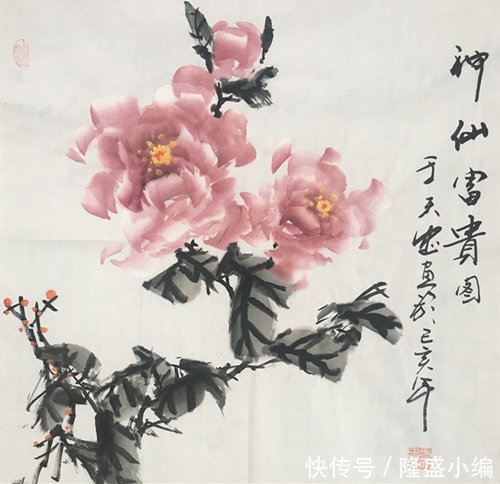 神仙富貴图
于天忠画於己亥年
快传号 / 隆盛小编